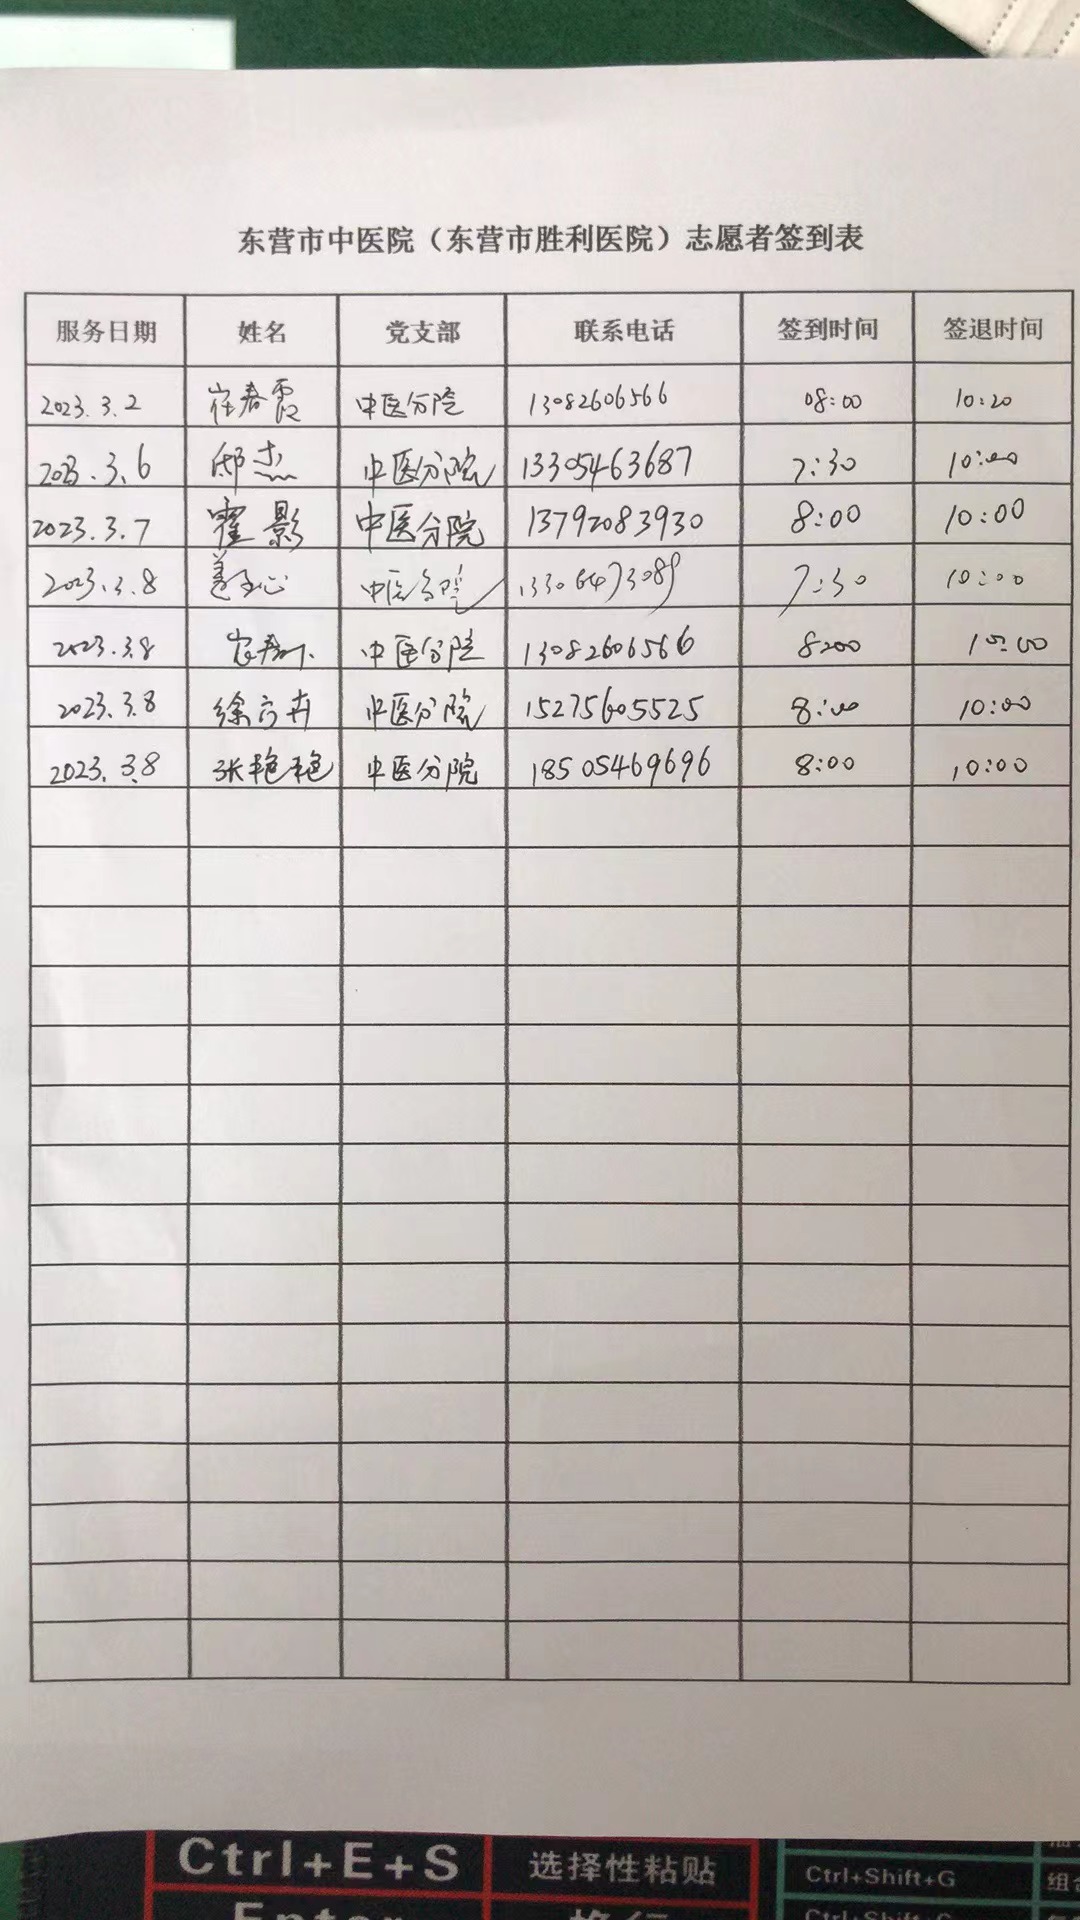 东营市中医院（东营市胜利医院）志愿者签到表
服务日期 姓名 党支部 联系电话 签到时间 签退时间
2023.3.2 崔春霞 中医分院 13082606566 08:00 10:20
2023.3.6 邴杰 中医分院 13305463687 7:30 10:00
2023.3.7 霍影 中医分院 13792083930 8:00 10:00
2023.3.8 中医分院 13306473089 7:30 10:00
2023.3.8 中医分院 13082606566 8:00 10:00
2023.3.8 徐 卉 中医分院 15275605525 8:00 10:00
2023.3.8 张艳艳 中医分院 18505469696 8:00 10:00
Ctrl+E+S 选择性粘贴 Ctrl+Shift+G
Enter